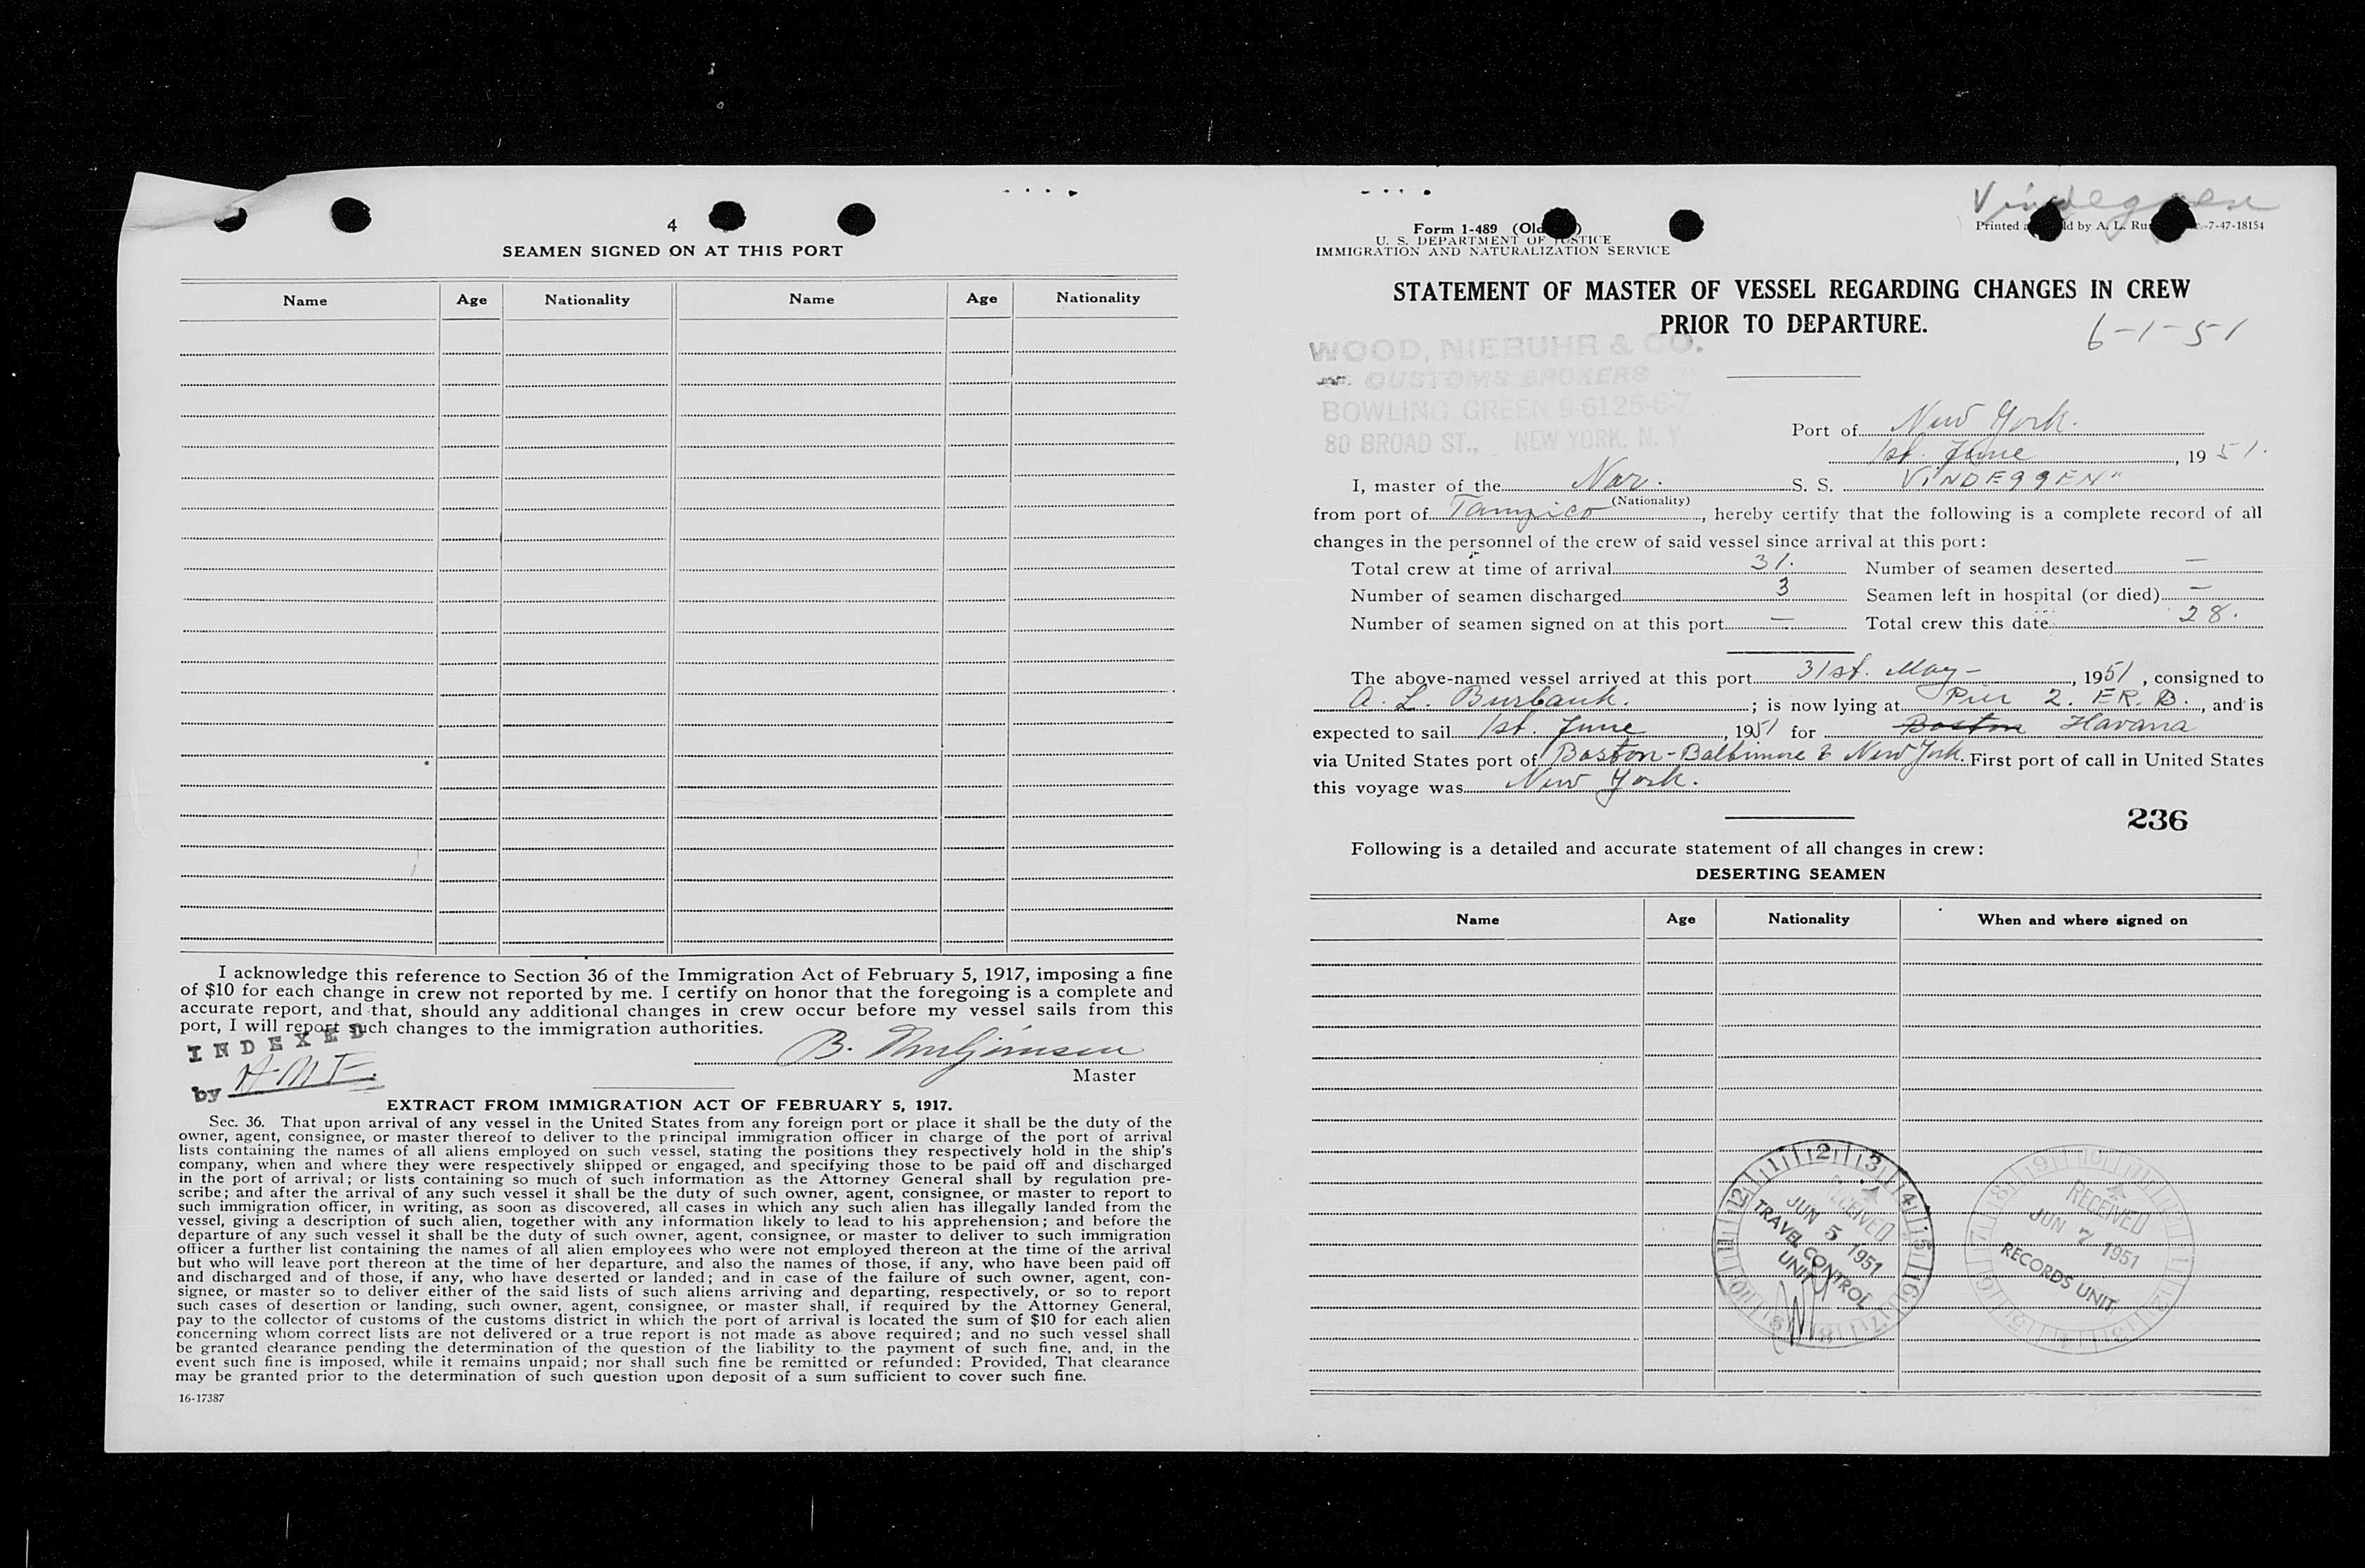 4
SEAMEN SIGNED ON AT THIS PORT
Name Age Nationality Name Age Nationality
I acknowledge this reference to Section 36 of the Immigration Act of February 5, 1917, imposing a fine
of $10 for each change in crew not reported by me. I certify on honor that the foregoing is a complete and
accurate report, and that, should any additional changes in crew occur before my vessel sails from this
port, I will report such changes to the immigration authorities.
INDEXED
by
B.
Master
EXTRACT FROM IMMIGRATION ACT OF FEBRUARY 5, 1917.
Sec. 36. That upon arrival of any vessel in the United States from any foreign port or place it shall be the duty of the
owner, agent, consignee, or master thereof to deliver to the principal immigration officer in charge of the port of arrival
lists containing the names of all aliens employed on such vessel, stating the positions they respectively hold in the ship's
company, when and where they were respectively shipped or engaged, and specifying those to be paid off and discharged
in the port of arrival; or lists containing so much of such information as the Attorney General shall by regulation pre-
scribe; and after the arrival of any such vessel it shall be the duty of such owner, agent, consignee, or master to report to
such immigration officer, in writing, as soon as discovered, all cases in which any such alien has illegally landed from the
vessel, giving a description of such alien, together with any information likely to lead to his apprehension; and before the
departure of any such vessel it shall be the duty of such owner, agent, consignee, or master to deliver to such immigration
officer a further list containing the names of all alien employees who were not employed thereon at the time of the arrival
but who will leave port thereon at the time of her departure, and also the names of those, if any, who have been paid off
and discharged and of those, if any, who have deserted or landed; and in case of the failure of such owner, agent, con-
signee, or master so to deliver either of the said lists of such aliens arriving and departing, respectively, or so to report
such cases of desertion or landing, such owner, agent, consignee, or master shall, if required by the Attorney General,
pay to the collector of customs of the customs district in which the port of arrival is located the sum of $10 for each alien
concerning whom correct lists are not delivered or a true report is not made as above required; and no such vessel shall
be granted clearance pending the determination of the question of the liability to the payment of such fine, and, in the
event such fine is imposed, while it remains unpaid; nor shall such fine be remitted or refunded: Provided, That clearance
may be granted prior to the determination of such question upon deposit of a sum sufficient to cover such fine.
16-17387
Vindeggen
Form 1-489 (Old
Printed by A. L. -7-47-18154
U. S. DEPARTMENT OF JUSTICE
IMMIGRATION AND NATURALIZATION SERVICE
STATEMENT OF MASTER OF VESSEL REGARDING CHANGES IN CREW
PRIOR TO DEPARTURE.
6-1-51
WOOD, NIEBUHR & CO.
CUSTOMS BROKERS
BOWLING GREEN 9-6125-6-7
80 BROAD ST., NEW YORK, N. Y
Port of New York.
1st. June, 1951.
I, master of the Nor. S. S. VINDEGGEN"
(Nationality)
from port of Tampico, hereby certify that the following is a complete record of all
changes in the personnel of the crew of said vessel since arrival at this port:
Total crew at time of arrival 31. Number of seamen deserted —
Number of seamen discharged 3 Seamen left in hospital (or died) —
Number of seamen signed on at this port — Total crew this date 28.
The above-named vessel arrived at this port 31st. May -, 1951, consigned to
A. L. Burbank.; is now lying at Pier 2. ER. B., and is
expected to sail 1st. June, 1951 for Boston Havana
via United States port of Boston - Baltimore & New York. First port of call in United States
this voyage was New York.
236
Following is a detailed and accurate statement of all changes in crew:
DESERTING SEAMEN
Name Age Nationality When and where signed on
RECEIVED
JUN 5 1951
TRAVEL CONTROL
UNIT
RECEIVED
JUN 7 1951
RECORDS UNIT